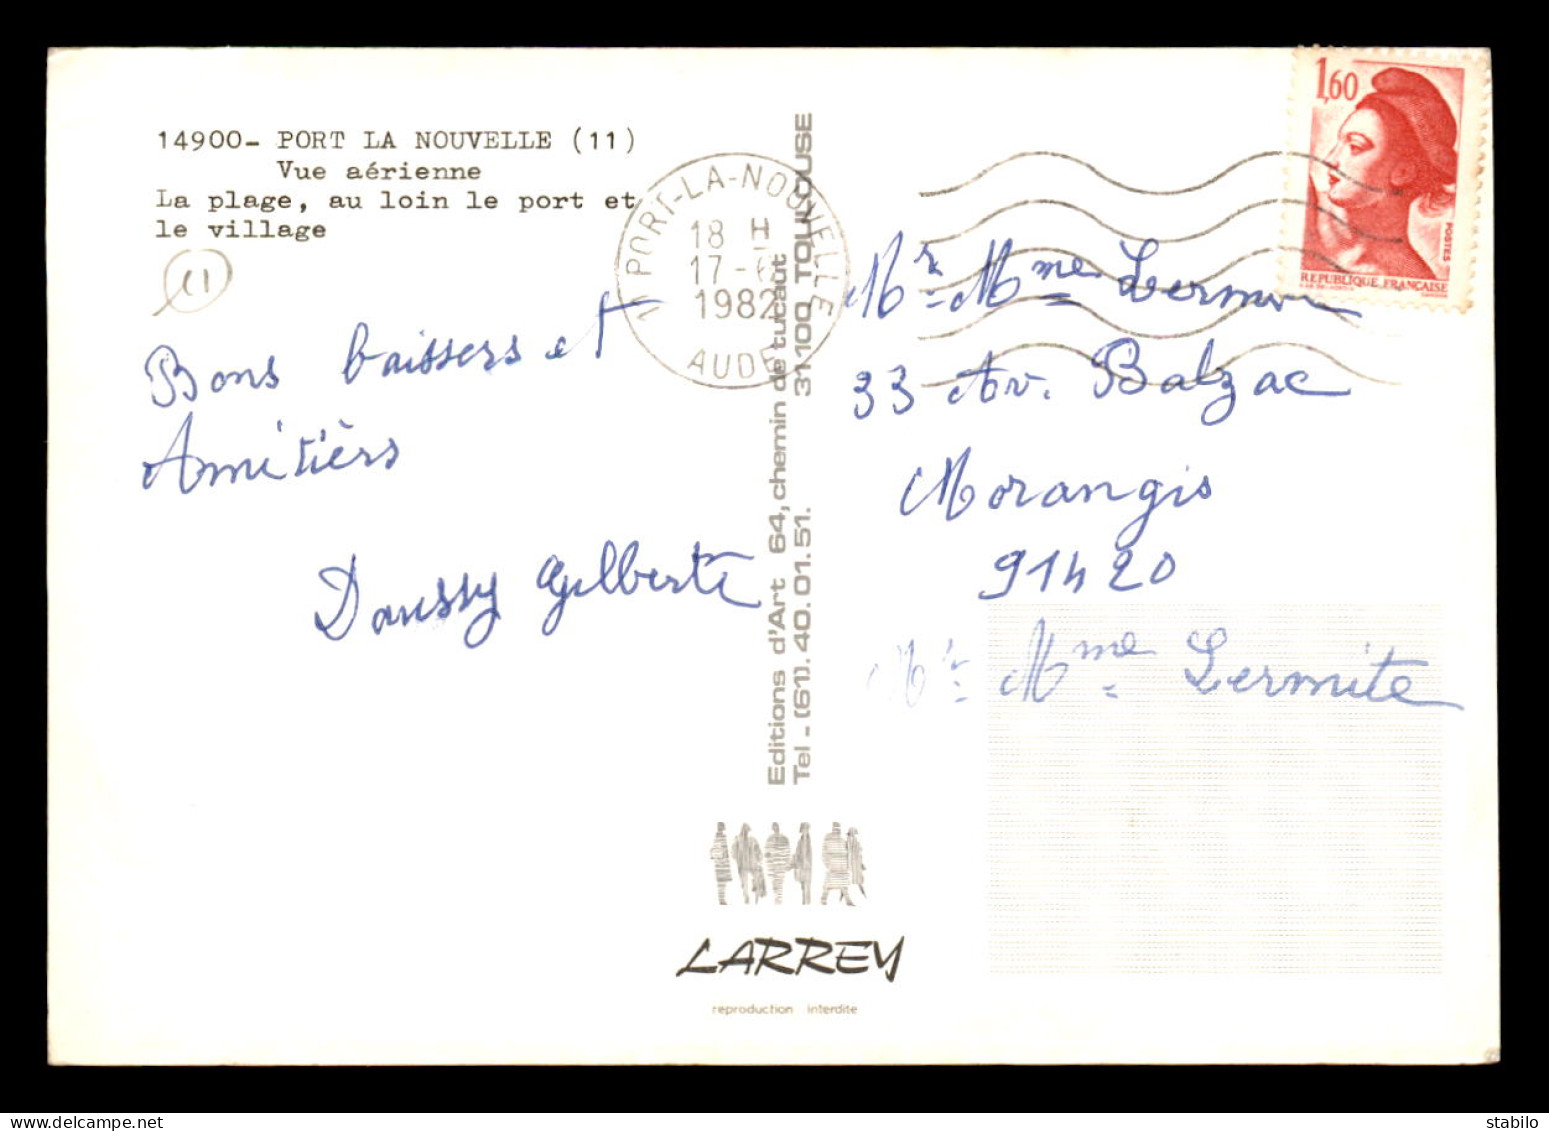 14900- PORT LA NOUVELLE (11)
Vue aérienne
La plage, au loin le port et
le village
11
Bons baissers et
Amitièrs
Doussy Gilberte
11 PORT-LA-NOUVELLE
18 H
17-6
1982
AUDE
Editions d'Art 64, chemin de tucaut
Tel - (61). 40. 01. 51. 31-100 TOULOUSE
LARREY
reproduction interdite
1,60
POSTES
REPUBLIQUE FRANÇAISE
Mr Mme
33 Av. Balzac
Morangis
91420
Mr Mme Lermite
stabilo